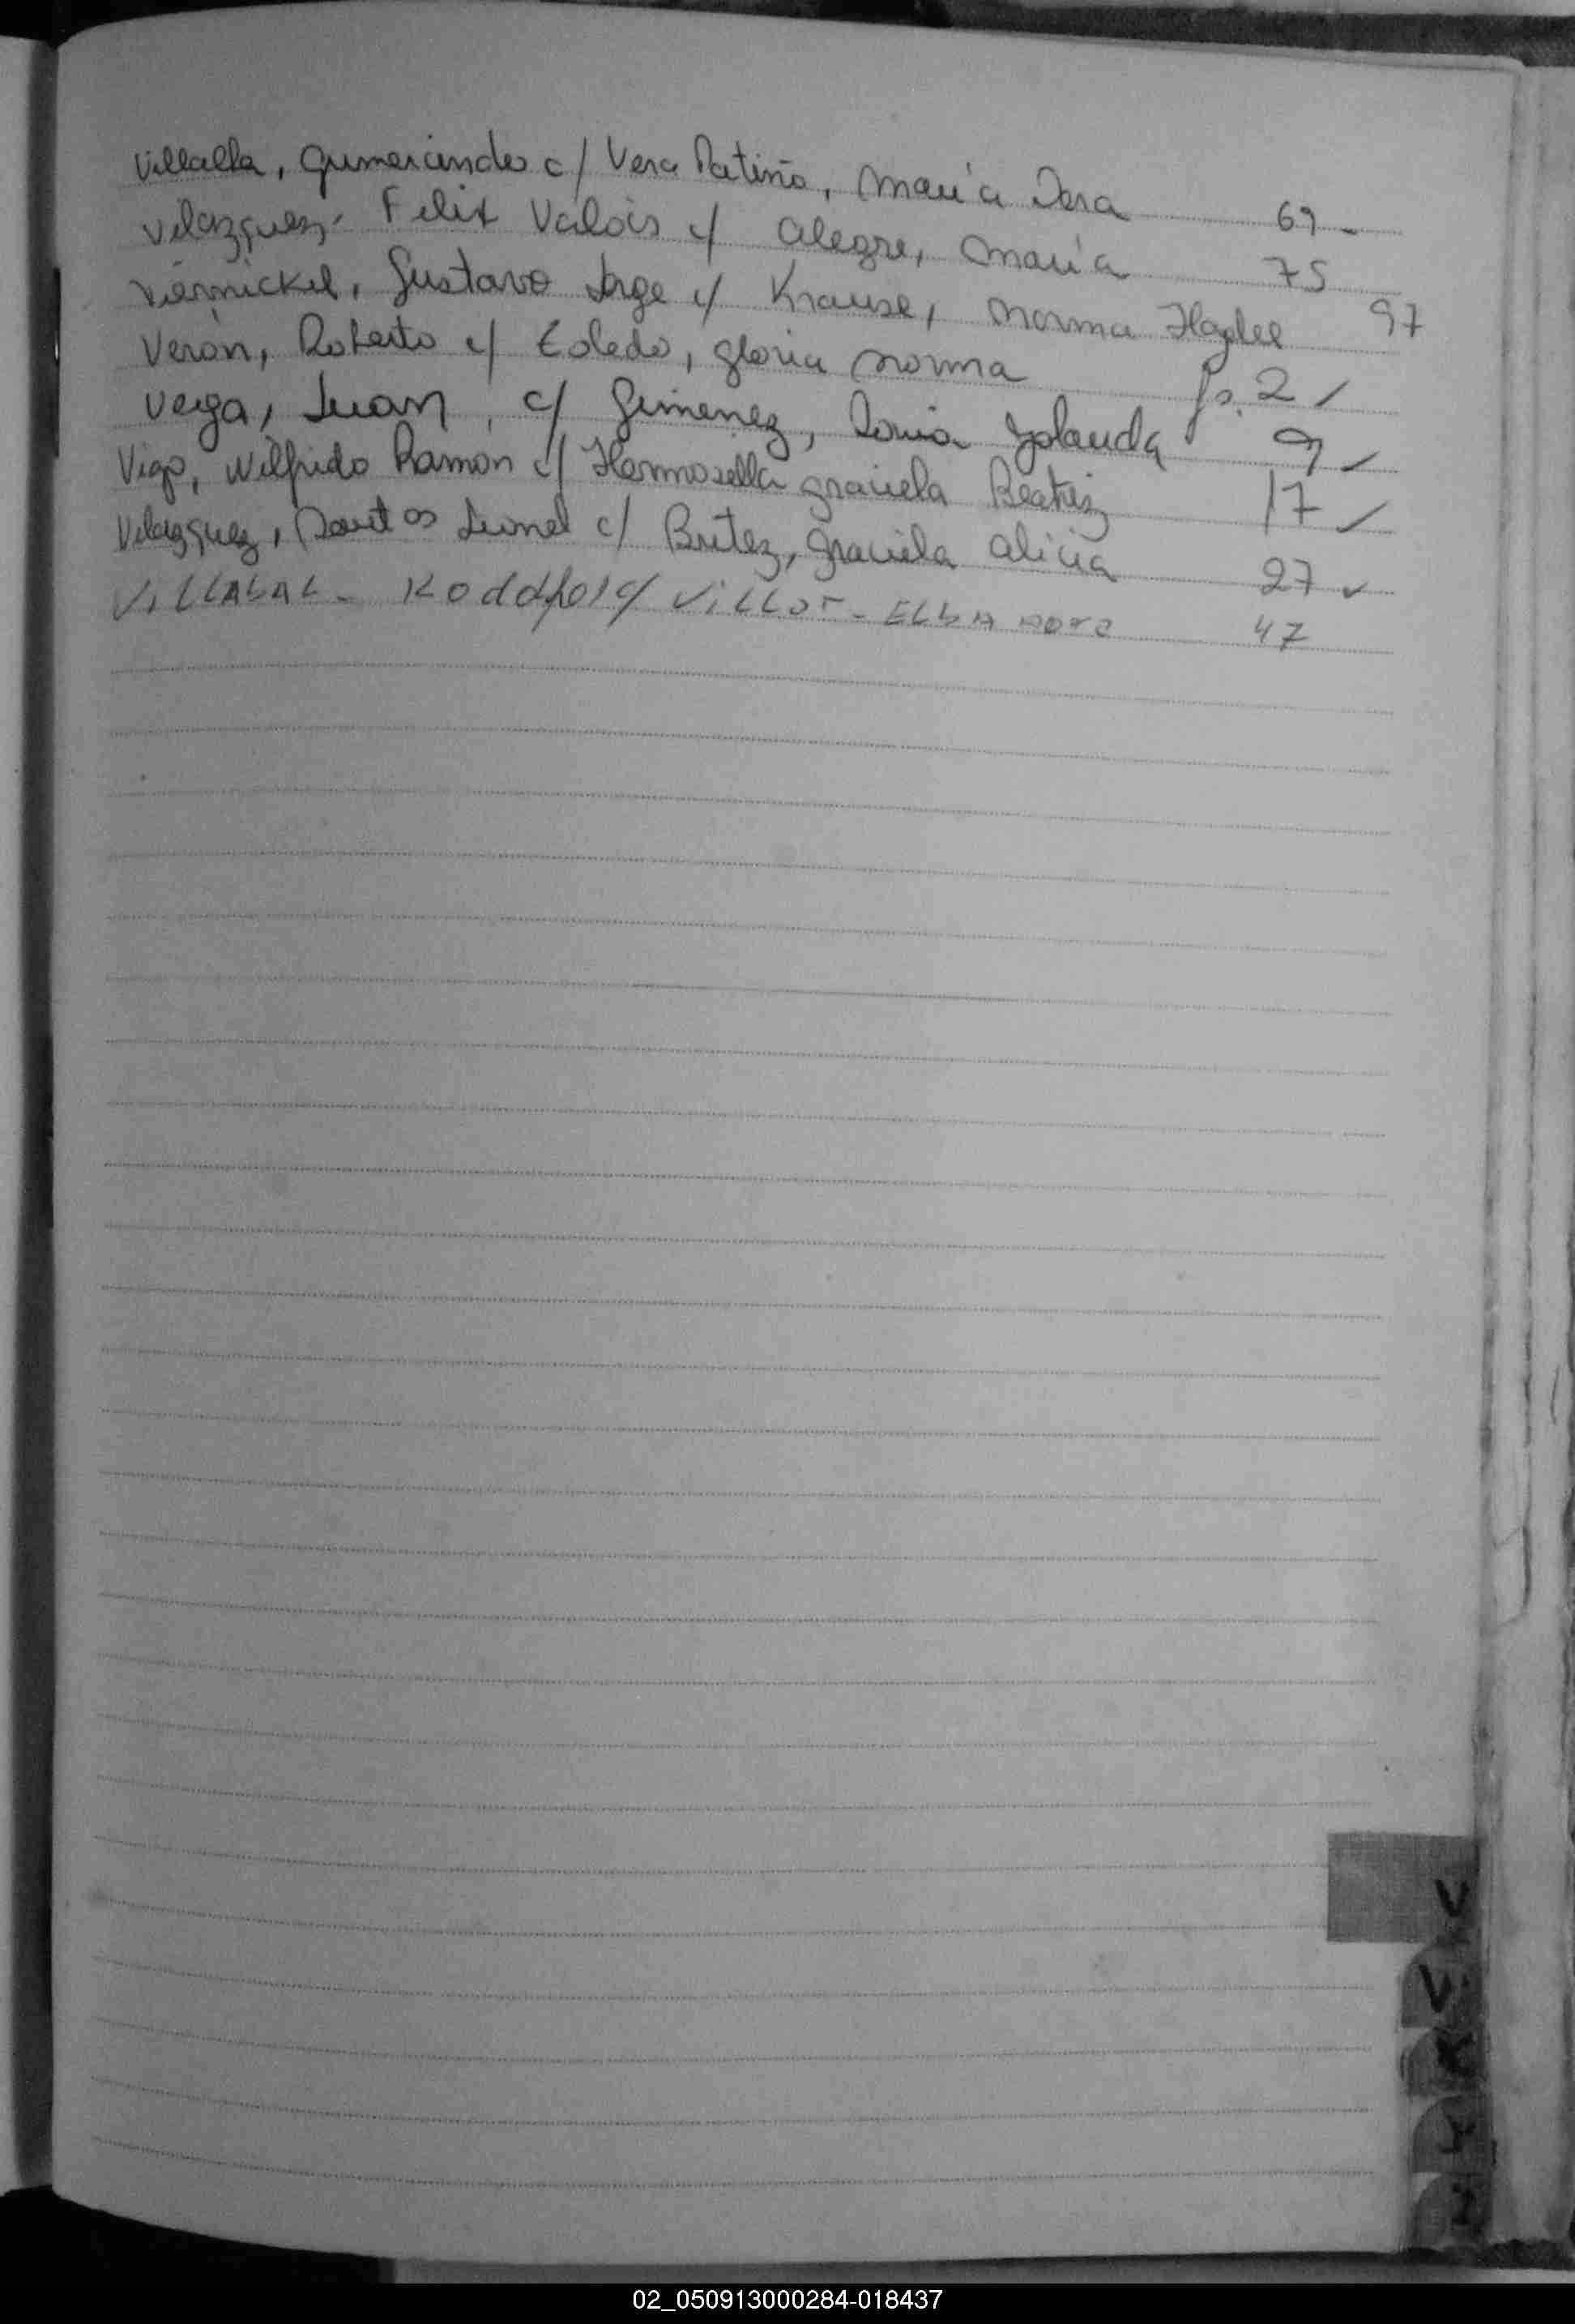 Villalba, Gumercindo c/ Vera Patiño, María Dora 69 -
Velazquez - Felix Valois c/ Alegre, María 75
Viernickel, Gustavo Jorge c/ Krause, Norma Haydee 97
Verón, Roberto c/ Toledo, Gloria Norma fs. 2 ✓
Vega, Juan, c/ Gimenez, Sonia Yolanda 9 ✓
Vigo, Wilfrido Ramón c/ Hermosilla Graciela Beatriz 17 ✓
Velazquez, Santos Leonel c/ Britez, Graciela Alicia 27 ✓
c/ ELBA 47
V
V
X
Y
Z
02_050913000284-018437